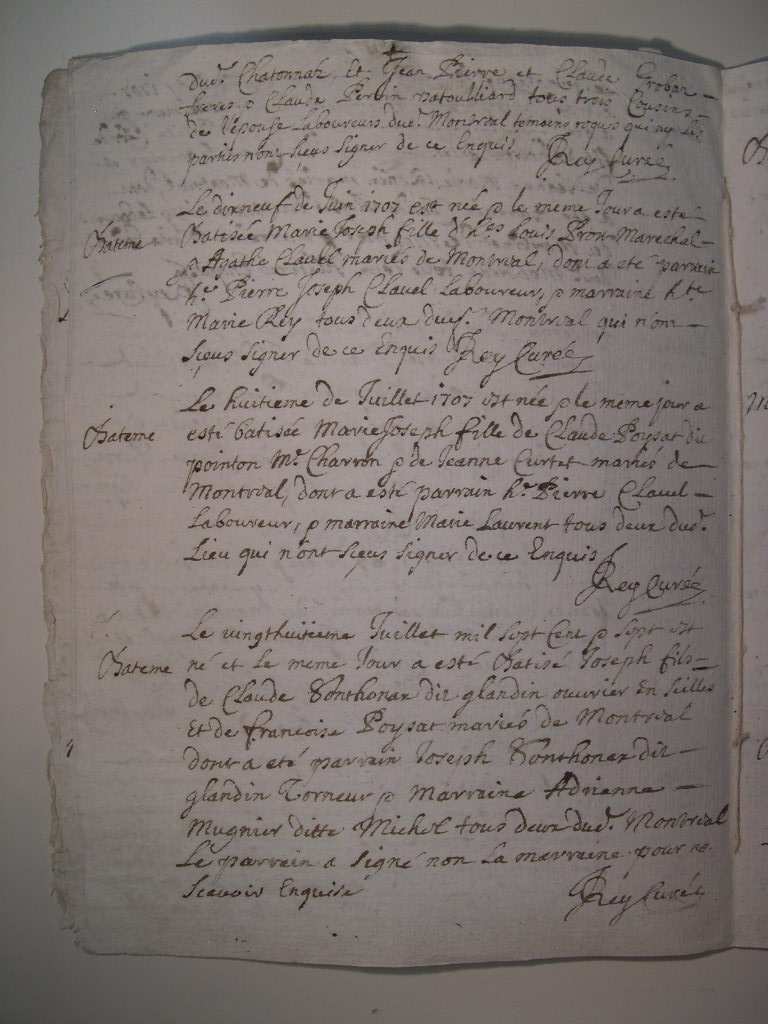 dud. Chatonnax Et Jean Pierre et Claude Groban
freres p Claude Perrin tous trois Cousins
de l'Epouse Laboureurs dud. Montreal temoins requis qui ny les
parties n'ont sceus signer de ce Enquis Rey Curé
Le dixneuf de Juin 1707 est née p le meme Jour a esté
Bateme Batisée Marie Joseph fille d'h.es Louis Proux Marechal
p Agathe Clavel mariés de Montreal, dont a eté parrain
h.e Pierre Joseph Clavel Laboureur, p marraine h.te
Marie Rey tous deux dud. Montreal qui n'ont
sceus signer de ce Enquis Rey Curé
Le huitieme de Juillet 1707 est née p le meme jour a
Bateme esté batisée Marie Joseph fille de Claude Poysat dit
pointon M.e Charron p de Jeanne Curtet mariés de
Montreal, dont a esté parrain h.e Pierre Clavel
Laboureur, p marraine Marie Laurent tous deux dud.
Lieu qui n'ont sceus signer de ce Enquis
Rey Curé
Le vingthuitieme Juillet mil sept Cent p sept est
Bateme né et le meme Jour a esté Batisé Joseph fils
de Claude Sonthonax dit glandin ouvrier En seilles
Et de francoise Poysat mariés de Montreal
dont a eté parrain Joseph Sonthonax dit
glandin Torneur p Marraine Adrienne
Mugnier ditte Michel tous deux dud. Montreal
Le parrain a signé non La marraine pour ne
scavoir Enquise Rey Curé